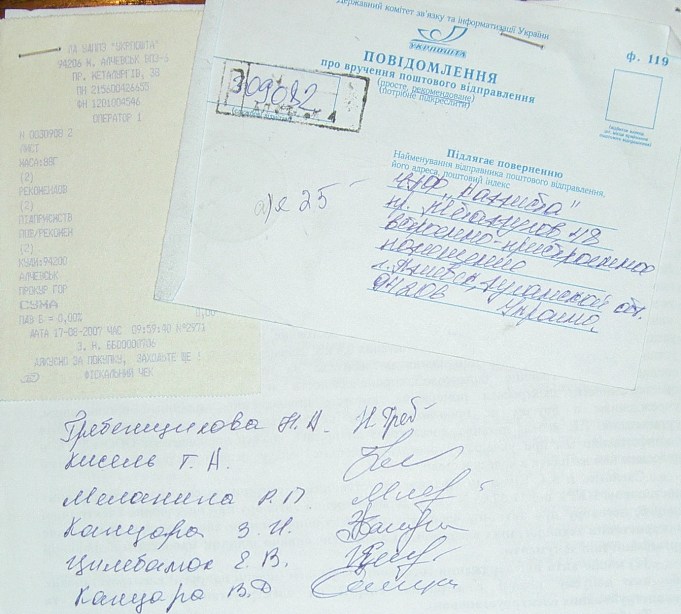 ЦА ВАППЗ "УКРПОШТА"
94206 М. АЛЧЕВСЬК ВПЗ-6
ПР. МЕТАЛУРГІВ, 38
ПН 215600426655
ФН 1201004546
ОПЕРАТОР 1
N 0030908 2
ЛИСТ
МАСА:98Г
(2)
РЕКОМЕНДОВ
(2)
ПІДПРИЄМСТВ
ПОВ/РЕКОМЕН
(2)
КУДИ:94200
АЛЧЕВСЬК
ПРОКУР ГОР
СУМА
ПДВ Б = 0,00% 0,00
ДАТА 17-08-2007 ЧАС 09:59:40 №2971
З. Н. ББ00000706
ДЯКУЄМО ЗА ПОКУПКУ, ЗАХОДЬТЕ ЩЕ !
ФІСКАЛЬНИЙ ЧЕК
Державний комітет зв'язку та інформатизації України
УКРПОШТА
ф. 119
ПОВІДОМЛЕННЯ
про вручення поштового відправлення
(просте, рекомендоване)
(потрібне підкреслити)
309082
Підлягає поверненню
Найменування відправника поштового відправлення,
його адреса, поштовий індекс
а/я 25
пр.
встроенно-пристроенное
помещение
г. Алчевск Луганской обл.
Украина
Гребенщикова Н.А. Н.Греб
Кисель Т.А.
Меланина Р.П.
Канцора З.И.
Цилебамок Е.В.
Канцора В.Д